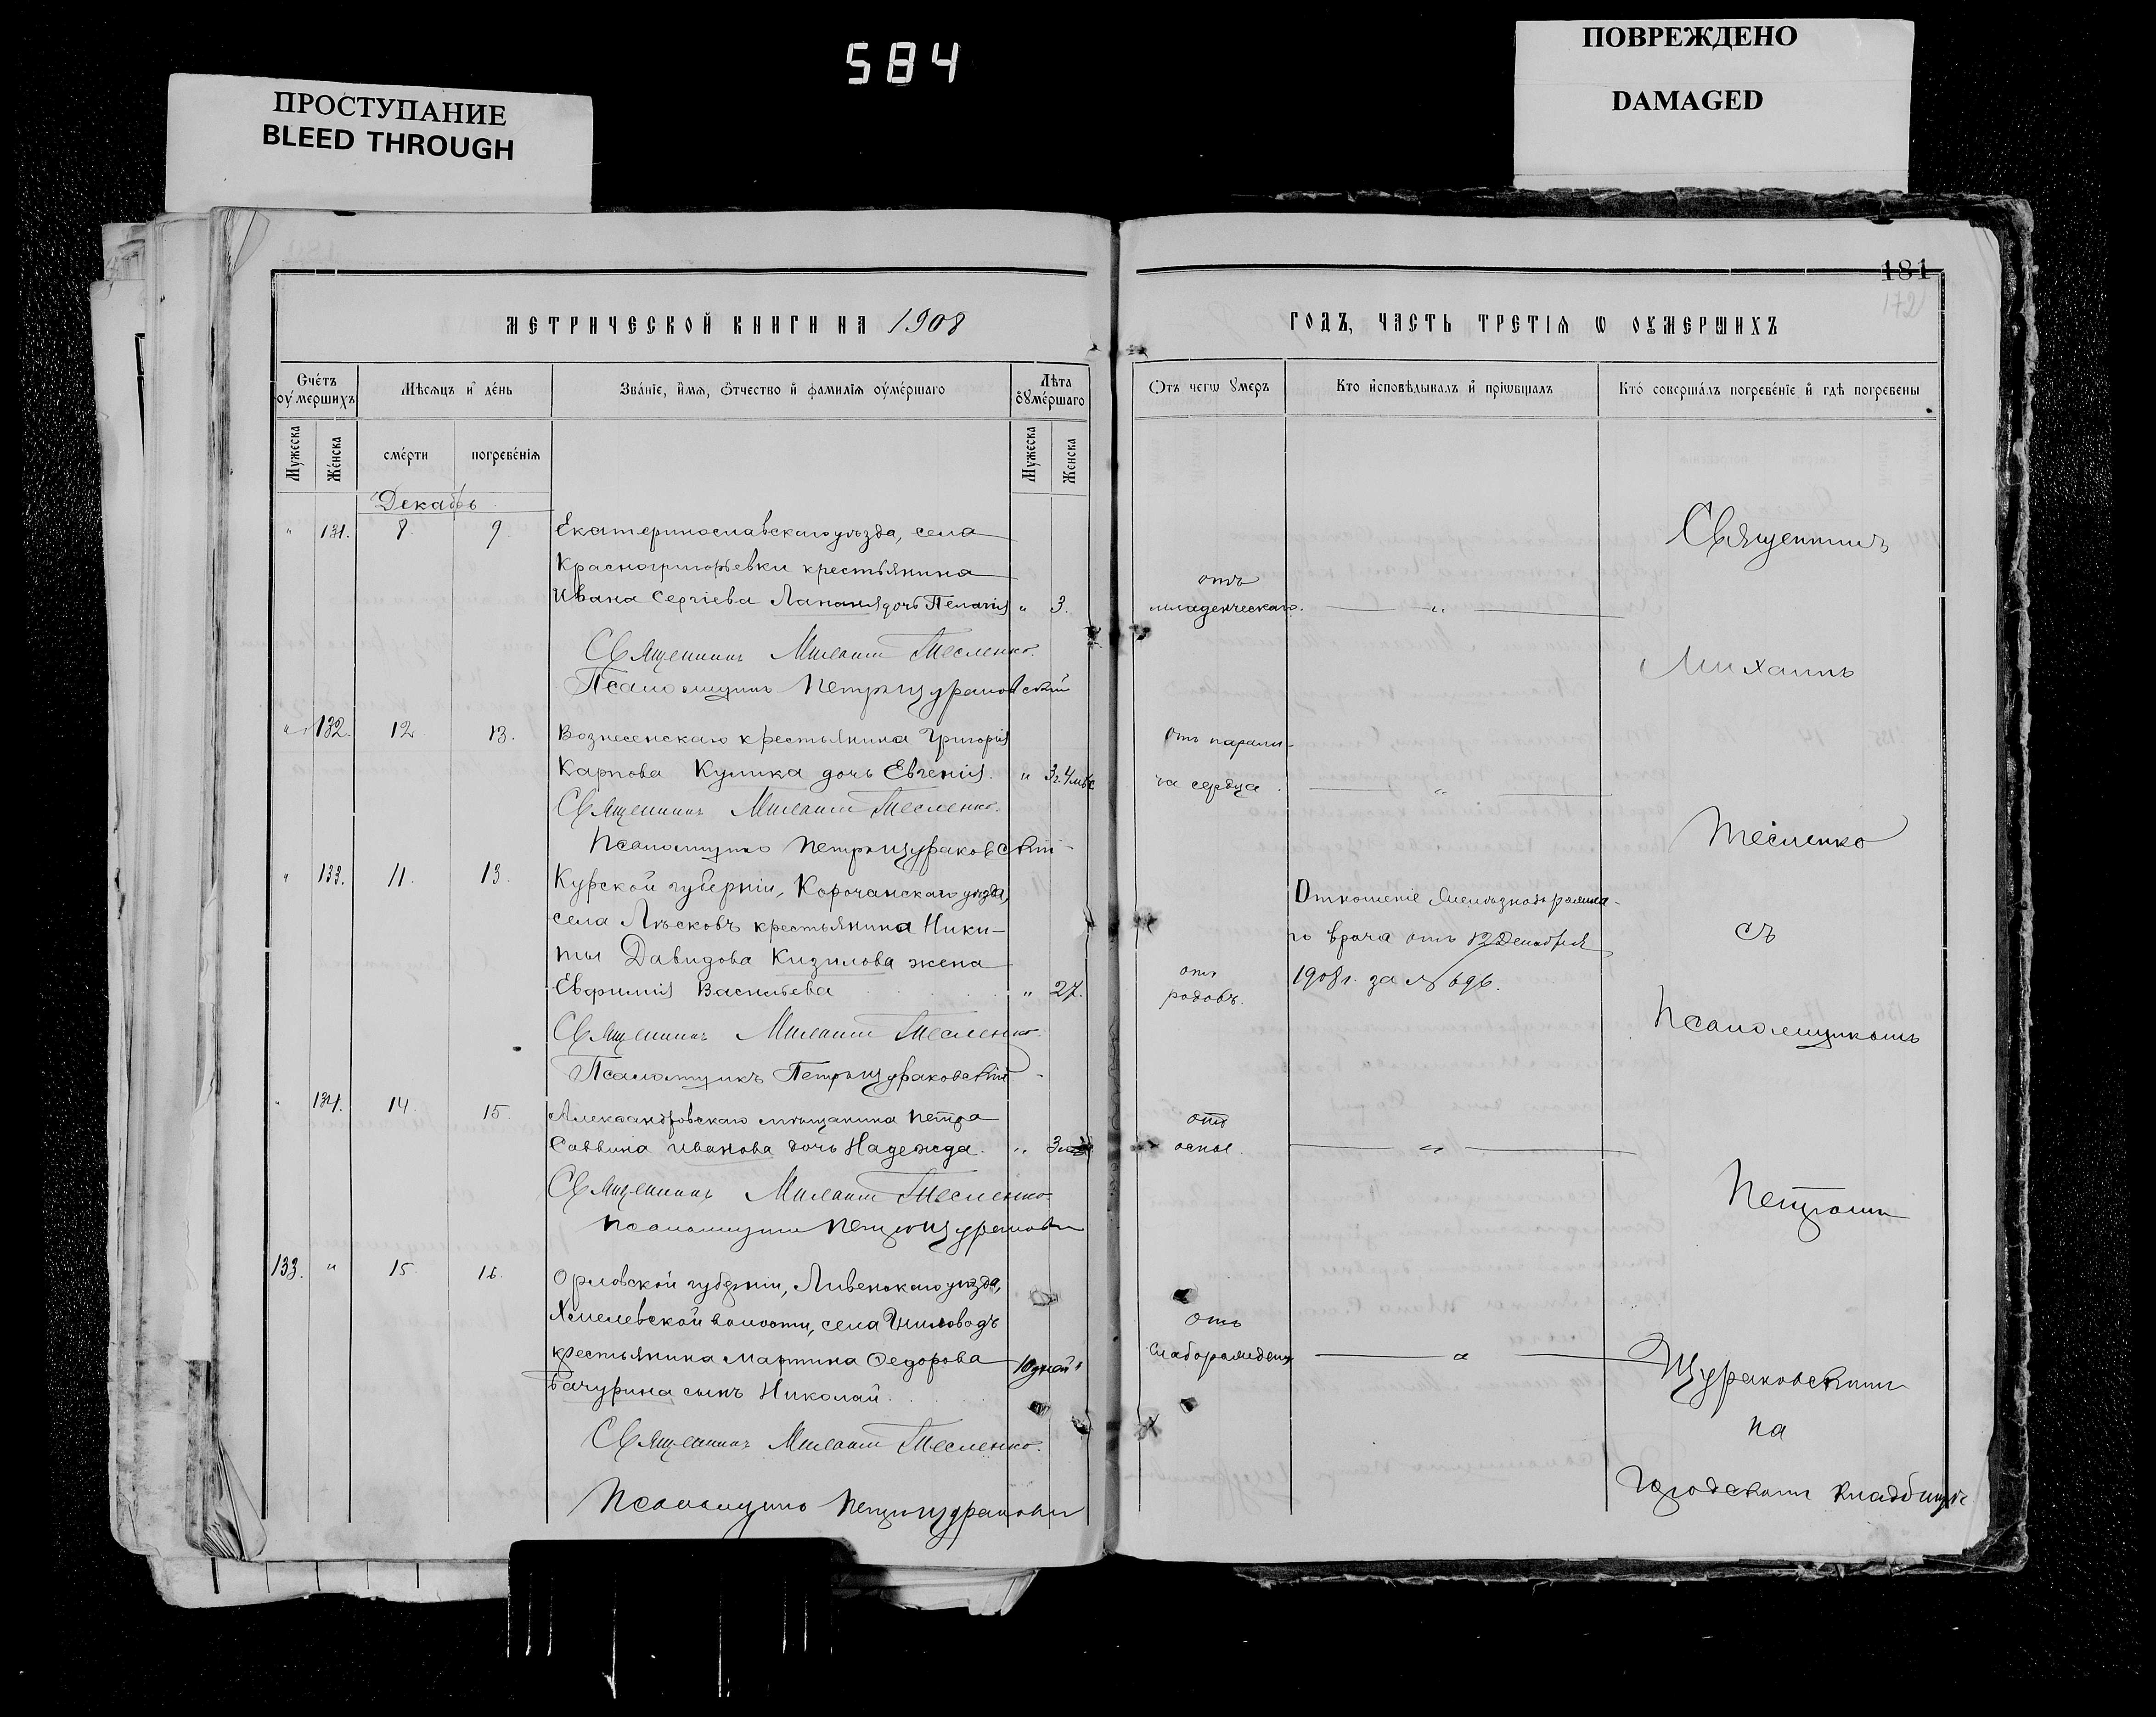 584
ПРОСТУПАНИЕ
BLEED THROUGH
ПОВРЕЖДЕНО
DAMAGED
181
172
МЕТРИЧЕСКОЙ КНИГИ НА 1908
Счетъ оумершихъ
Мѣсяцъ и день
Званіе, имя, отчество и фамилія оумершаго
Лѣта оумершаго
Мужеска
Женска
смерти
погребенія
Мужеска
Женска
Декабрь
" 131. 8. 9. Екатеринославскаго уѣзда, села
Красногригорьевки крестьянина
Ивана Сергіева дочь Пелагія " 3.
Священникъ Михаилъ Тесленко.
Псаломщикъ Петръ Щураковскій
" 132. 12. 13. Вознесенскаго крестьянина Григорія
Карпова Кулика дочь Евгенія. " 3 г. 4 мѣс
Священникъ Михаилъ Тесленко.
Псаломщикъ Петръ Щураковскій
" 133. 11. 13. Курской губерніи, Корочанскаго уѣзда,
села Лѣсковъ крестьянина Ники-
ты Давидова Кизилова жена
Евфимія Васильева " 27.
Священникъ Михаилъ Тесленко.
Псаломщикъ Петръ Щураковскій
" 134. 14. 15. Александровскаго мѣщанина Петра
Саввина Иванова дочь Надежда. "
Священникъ Михаилъ Тесленко
Псаломщикъ Петръ Щураковскій
133. " 15. 16. Орловской губерніи, Ливенскаго уѣзда,
Хмелевской волости, села
крестьянина Мартина Федорова 10 дней "
Бачурина сынъ Николай.
Священникъ Михаилъ Тесленко.
Псаломщикъ Петръ Щураковскій
ГОДЪ, ЧАСТЬ ТРЕТІЯ Ѡ ОУМЕРШИХЪ
Отъ чегѡ умеръ
Кто исповѣдывалъ и пріѡбщалъ
Кто совершалъ погребеніе и гдѣ погребены
отъ
младенческаго. "
отъ парали-
ча сердца. "
Отношеніе желѣзнодорожна-
го врача отъ 12 Декабря
1908 г. за № 696.
отъ
родовъ.
отъ
оспы. "
отъ
слаборожденія "
Священникъ
Михаилъ
Тесленко
съ
Псаломщикомъ
Петромъ
Щураковскимъ
на
Городскомъ кладбищѣ